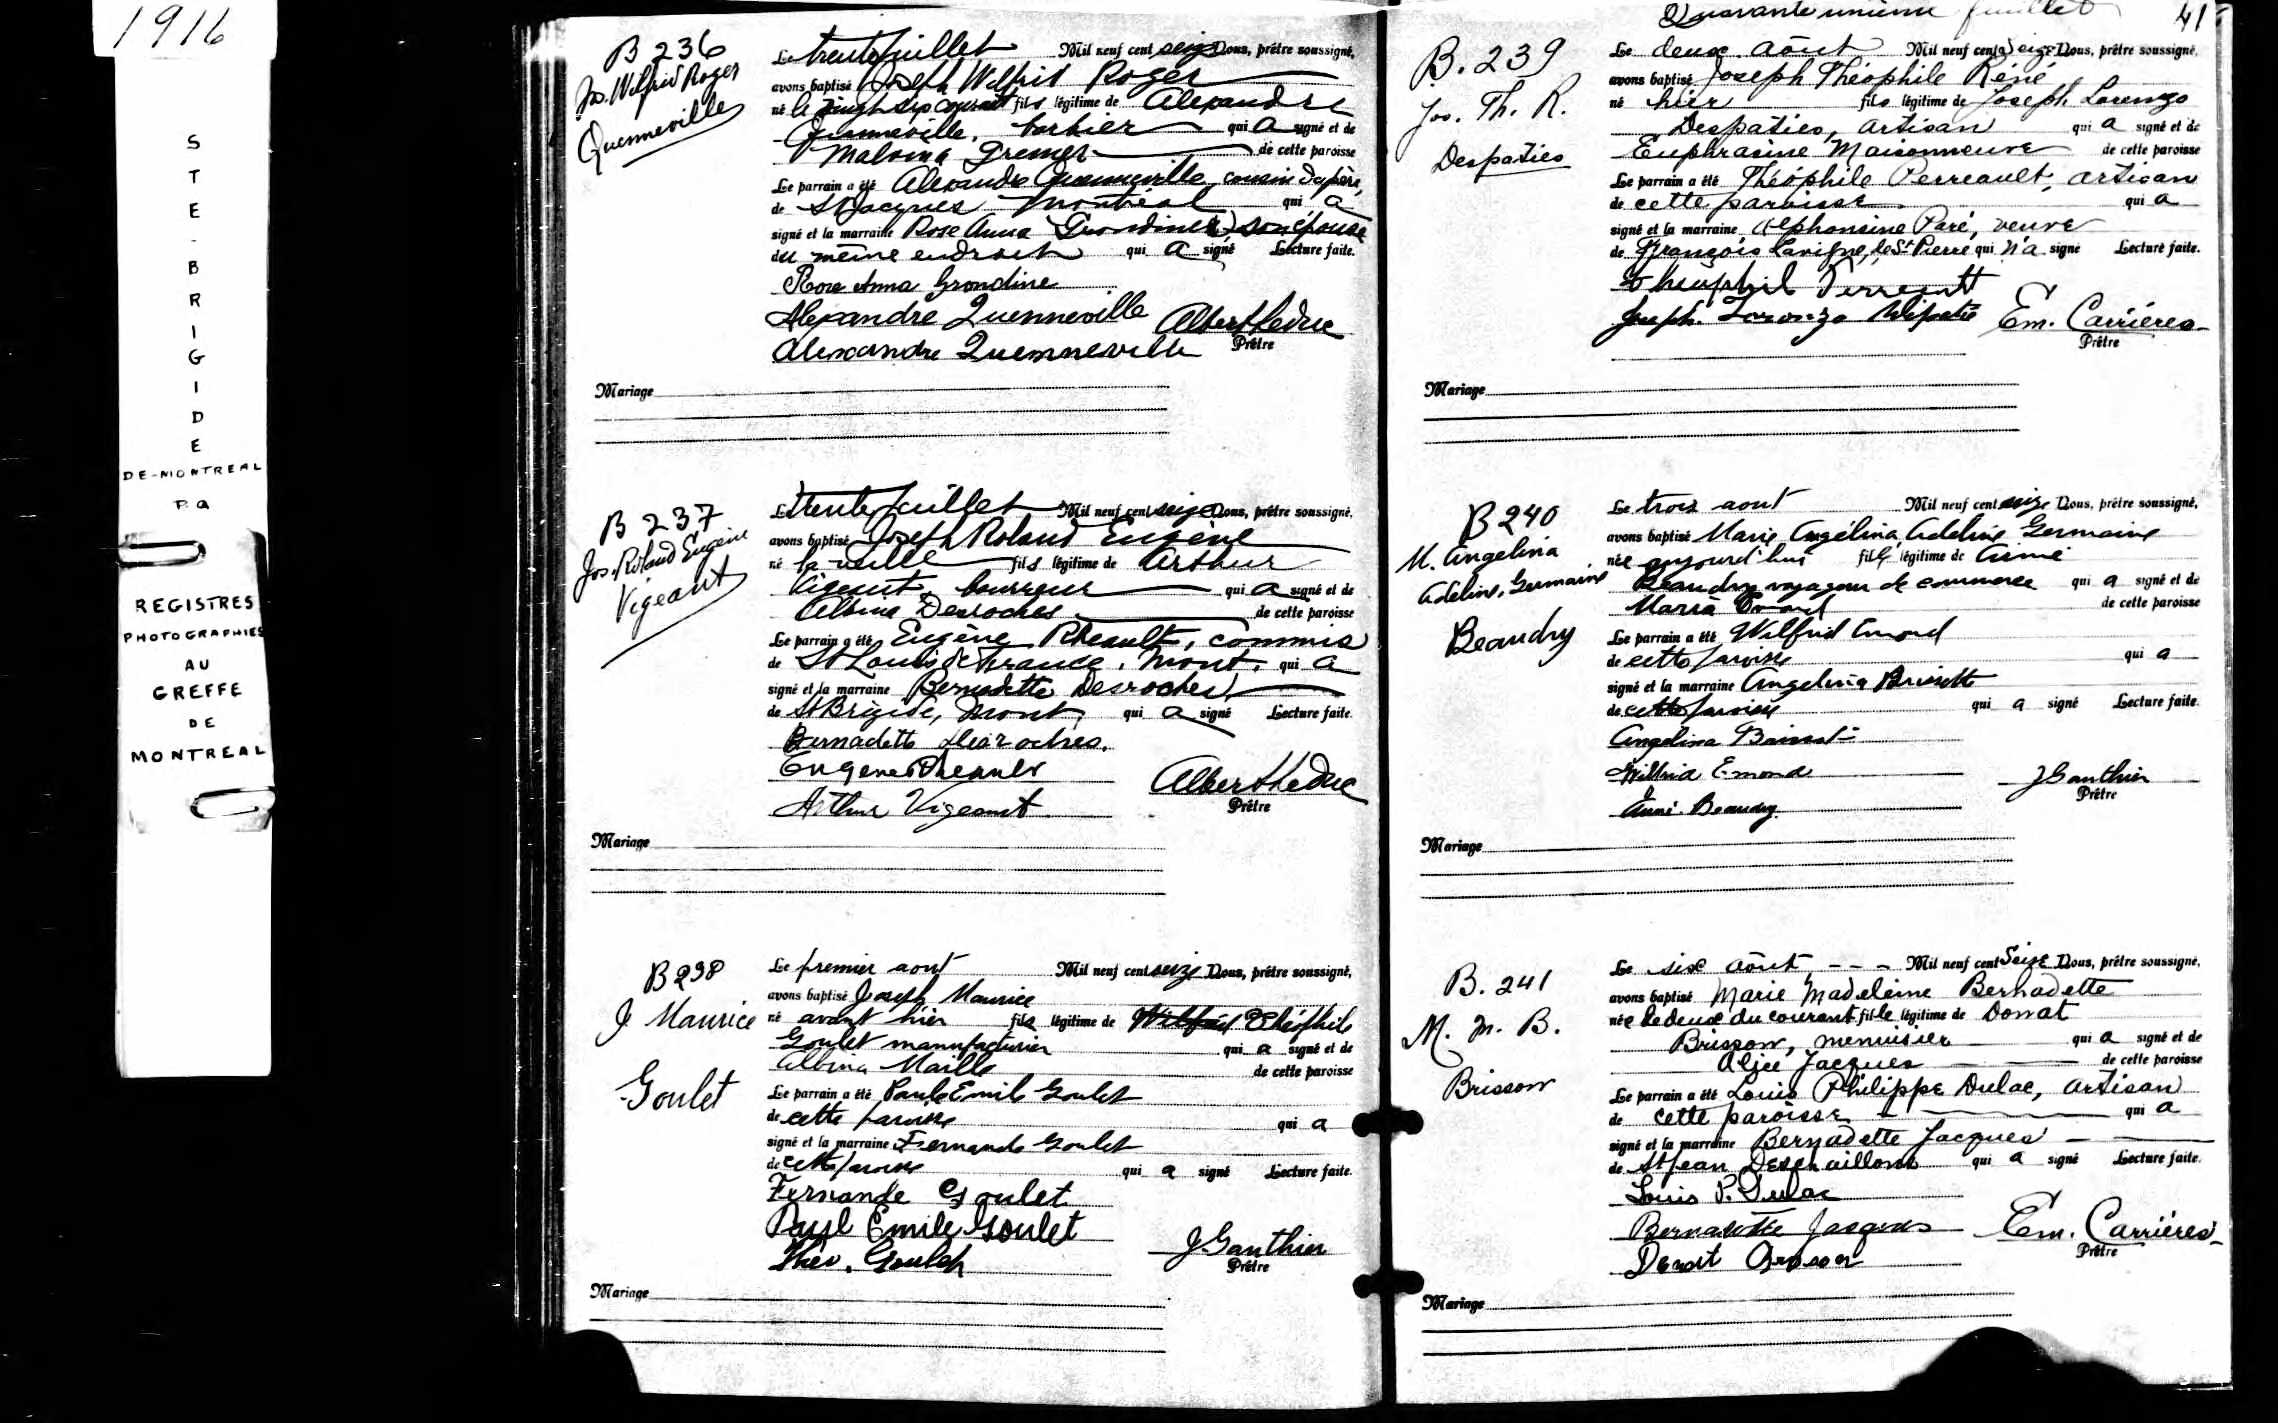 1916
STE-BRIGIDE
DE-MONTREAL
P.Q
REGISTRES
PHOTOGRAPHIES
AU
GREFFE
DE
MONTREAL
B 236
Jos. Wilfrid Roger
Quenneville
Le trente juillet Mil neuf cent seize Nous, prêtre soussigné,
avons baptisé Joseph Wilfrid Roger
né le vingt six courant fils légitime de Alexandre
Quenneville, barbier qui a signé et de
Malvina Grenier de cette paroisse
Le parrain a été Alexandre Quenneville, cousin du père,
de St Jacques Montréal qui a
signé et la marraine Rose Anna Grondines son épouse
du même endroit qui a signé Lecture faite.
Rose Anna Grondine
Alexandre Quenneville
Alexandre Quenneville
Albert Leduc
Prêtre
Mariage
B 237
Jos. Roland Eugène
Vigeant
Le trente juillet Mil neuf cent seize Nous, prêtre soussigné,
avons baptisé Joseph Roland Eugène
né la veille fils légitime de Arthur
Vigeant, bourreur qui a signé et de
Albina Desroches de cette paroisse
Le parrain a été Eugène Rheault, commis
de St Louis de France, Mont. qui a
signé et la marraine Bernadette Desroches
de St Brigide, Mont, qui a signé Lecture faite.
Bernadette Desroches.
Eugene Rheault
Arthur Vigeant
Albert Leduc
Prêtre
Mariage
B 238
J Maurice
Goulet
Le premier aout Mil neuf cent seize Nous, prêtre soussigné,
avons baptisé Joseph Maurice
né avant hier fils légitime de Théophile
Goulet manufacturier qui a signé et de
Albina Maille de cette paroisse
Le parrain a été Paul Emile Goulet
de cette paroisse qui a
signé et la marraine Fernande Goulet
de cette paroisse qui a signé Lecture faite.
Fernande Goulet
Paul Emile Goulet
Theo. Goulet
J Gauthier
Prêtre
Mariage
Quarante unième feuillet 41
B. 239
Jos. Th. R.
Despaties
Le deux août Mil neuf cent seize Nous, prêtre soussigné,
avons baptisé Joseph Théophile Réné
né hier fils légitime de Joseph Lorenzo
Despaties, artisan qui a signé et de
Euphrasine Maisonneuve de cette paroisse
Le parrain a été Théophile Perreault, artisan
de cette paroisse qui a
signé et la marraine Alphonsine Paré, veuve
de François Lavigne, de St Pierre qui n'a signé Lecture faite.
Theophil Perreault
Joseph. Lorenzo
Em. Carrières
Prêtre
Mariage
B 240
M. Angelina
Adeline, Germaine
Beaudry
Le trois aout Mil neuf cent seize Nous, prêtre soussigné,
avons baptisé Marie Angélina Adeline Germaine
née aujourd'hui fille légitime de Aimé
Beaudry voyageur de commerce qui a signé et de
Maria Emond de cette paroisse
Le parrain a été Wilfrid Emond
de cette paroisse qui a
signé et la marraine Angelina
de cette paroisse qui a signé Lecture faite.
Angelina
Wilfrid Emond
Aimé. Beaudry.
J Gauthier
Prêtre
Mariage
B. 241
M. M. B.
Brisson
Le six août - - - Mil neuf cent seize Nous, prêtre soussigné,
avons baptisé Marie Madeleine Bernadette
née le deux du courant fille légitime de Donat
Brisson, menuisier qui a signé et de
Alice Jacques de cette paroisse
Le parrain a été Louis Philippe Dulac, artisan
de cette paroisse qui a
signé et la marraine Bernadette Jacques
de St Jean Deschaillons qui a signé Lecture faite.
Louis P. Dulac
Bernadette Jacques
Donat Brisson
Em. Carrières
Prêtre
Mariage